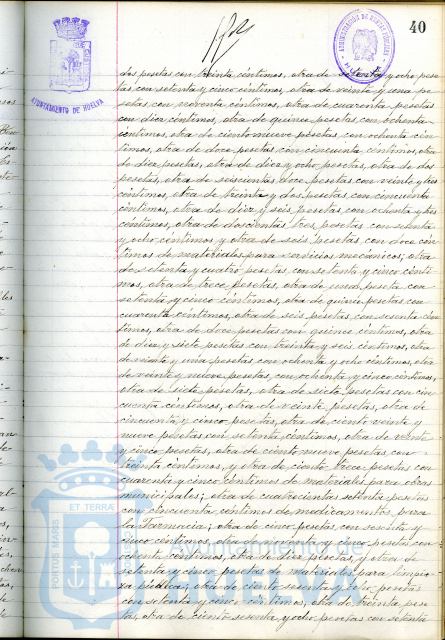 40
AYUNTAMIENTO DE HUELVA
dos pesetas con treinta céntimos, otra de setenta y ocho pese
tas con setenta y cinco céntimos, otra de veinte y una pe
setas con noventa céntimos, otra de cuarenta pesetas
con diez céntimos, otra de quince pesetas con ochenta
céntimos, otra de ciento nueve pesetas con ochenta cén
timos, otra de doce pesetas con cincuenta céntimos, otra
de diez pesetas, otra de diez y ocho pesetas, otra de dos
pesetas, otra de seiscientas doce pesetas con veinte y dos
céntimos, otra de treinta y dos pesetas con cincuenta
céntimos, otra de diez y seis pesetas con ochenta y tres
céntimos, otra de doscientas tres pesetas con setenta
y ocho céntimos y otra de seis pesetas con doce cén
timos de materiales para servicios mecánicos; otra
de setenta y cuatro pesetas con setenta y cinco cénti
mos, otra de trece pesetas, otra de una peseta con
setenta y cinco céntimos, otra de quince pesetas con
cuarenta céntimos, otra de seis pesetas con sesenta cén
timos, otra de doce pesetas con quince céntimos, otra
de diez y siete pesetas con treinta y seis céntimos, otra
de veinte y una pesetas con ochenta y ocho céntimos, otra
de veinte y nueve pesetas con ochenta y cinco céntimos,
otra de siete pesetas, otra de siete pesetas con cin
cuenta céntimos, otra de veinte pesetas, otra de
cincuenta y cinco pesetas, otra de ciento veinte y
nueve pesetas con setenta céntimos, otra de veinte
y cinco pesetas, otra de ciento nueve pesetas con
treinta céntimos, y otra de ciento trece pesetas con
cuarenta y cinco céntimos de materiales para obras
municipales; otra de cuatrocientas setenta pesetas
con cincuenta céntimos de medicamentos para
la Farmacia; otra de cinco pesetas con sesenta y
cinco céntimos, otra de noventa y cinco pesetas con
ochenta céntimos, otra de diez pesetas y otra de
setenta y cinco pesetas de materiales para limpie
za pública; otra de ciento sesenta y ocho pesetas
con setenta y cinco céntimos, otra de treinta pese
tas, otra de ciento sesenta y ocho pesetas con setenta
PORTUS MARIS
ET TERRAE
Ayuntamiento de
HUELVA